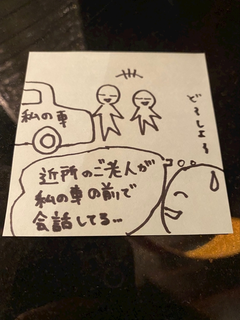 私の車
どーしよう
近所のご老人が
私の車の前で
会話してる…